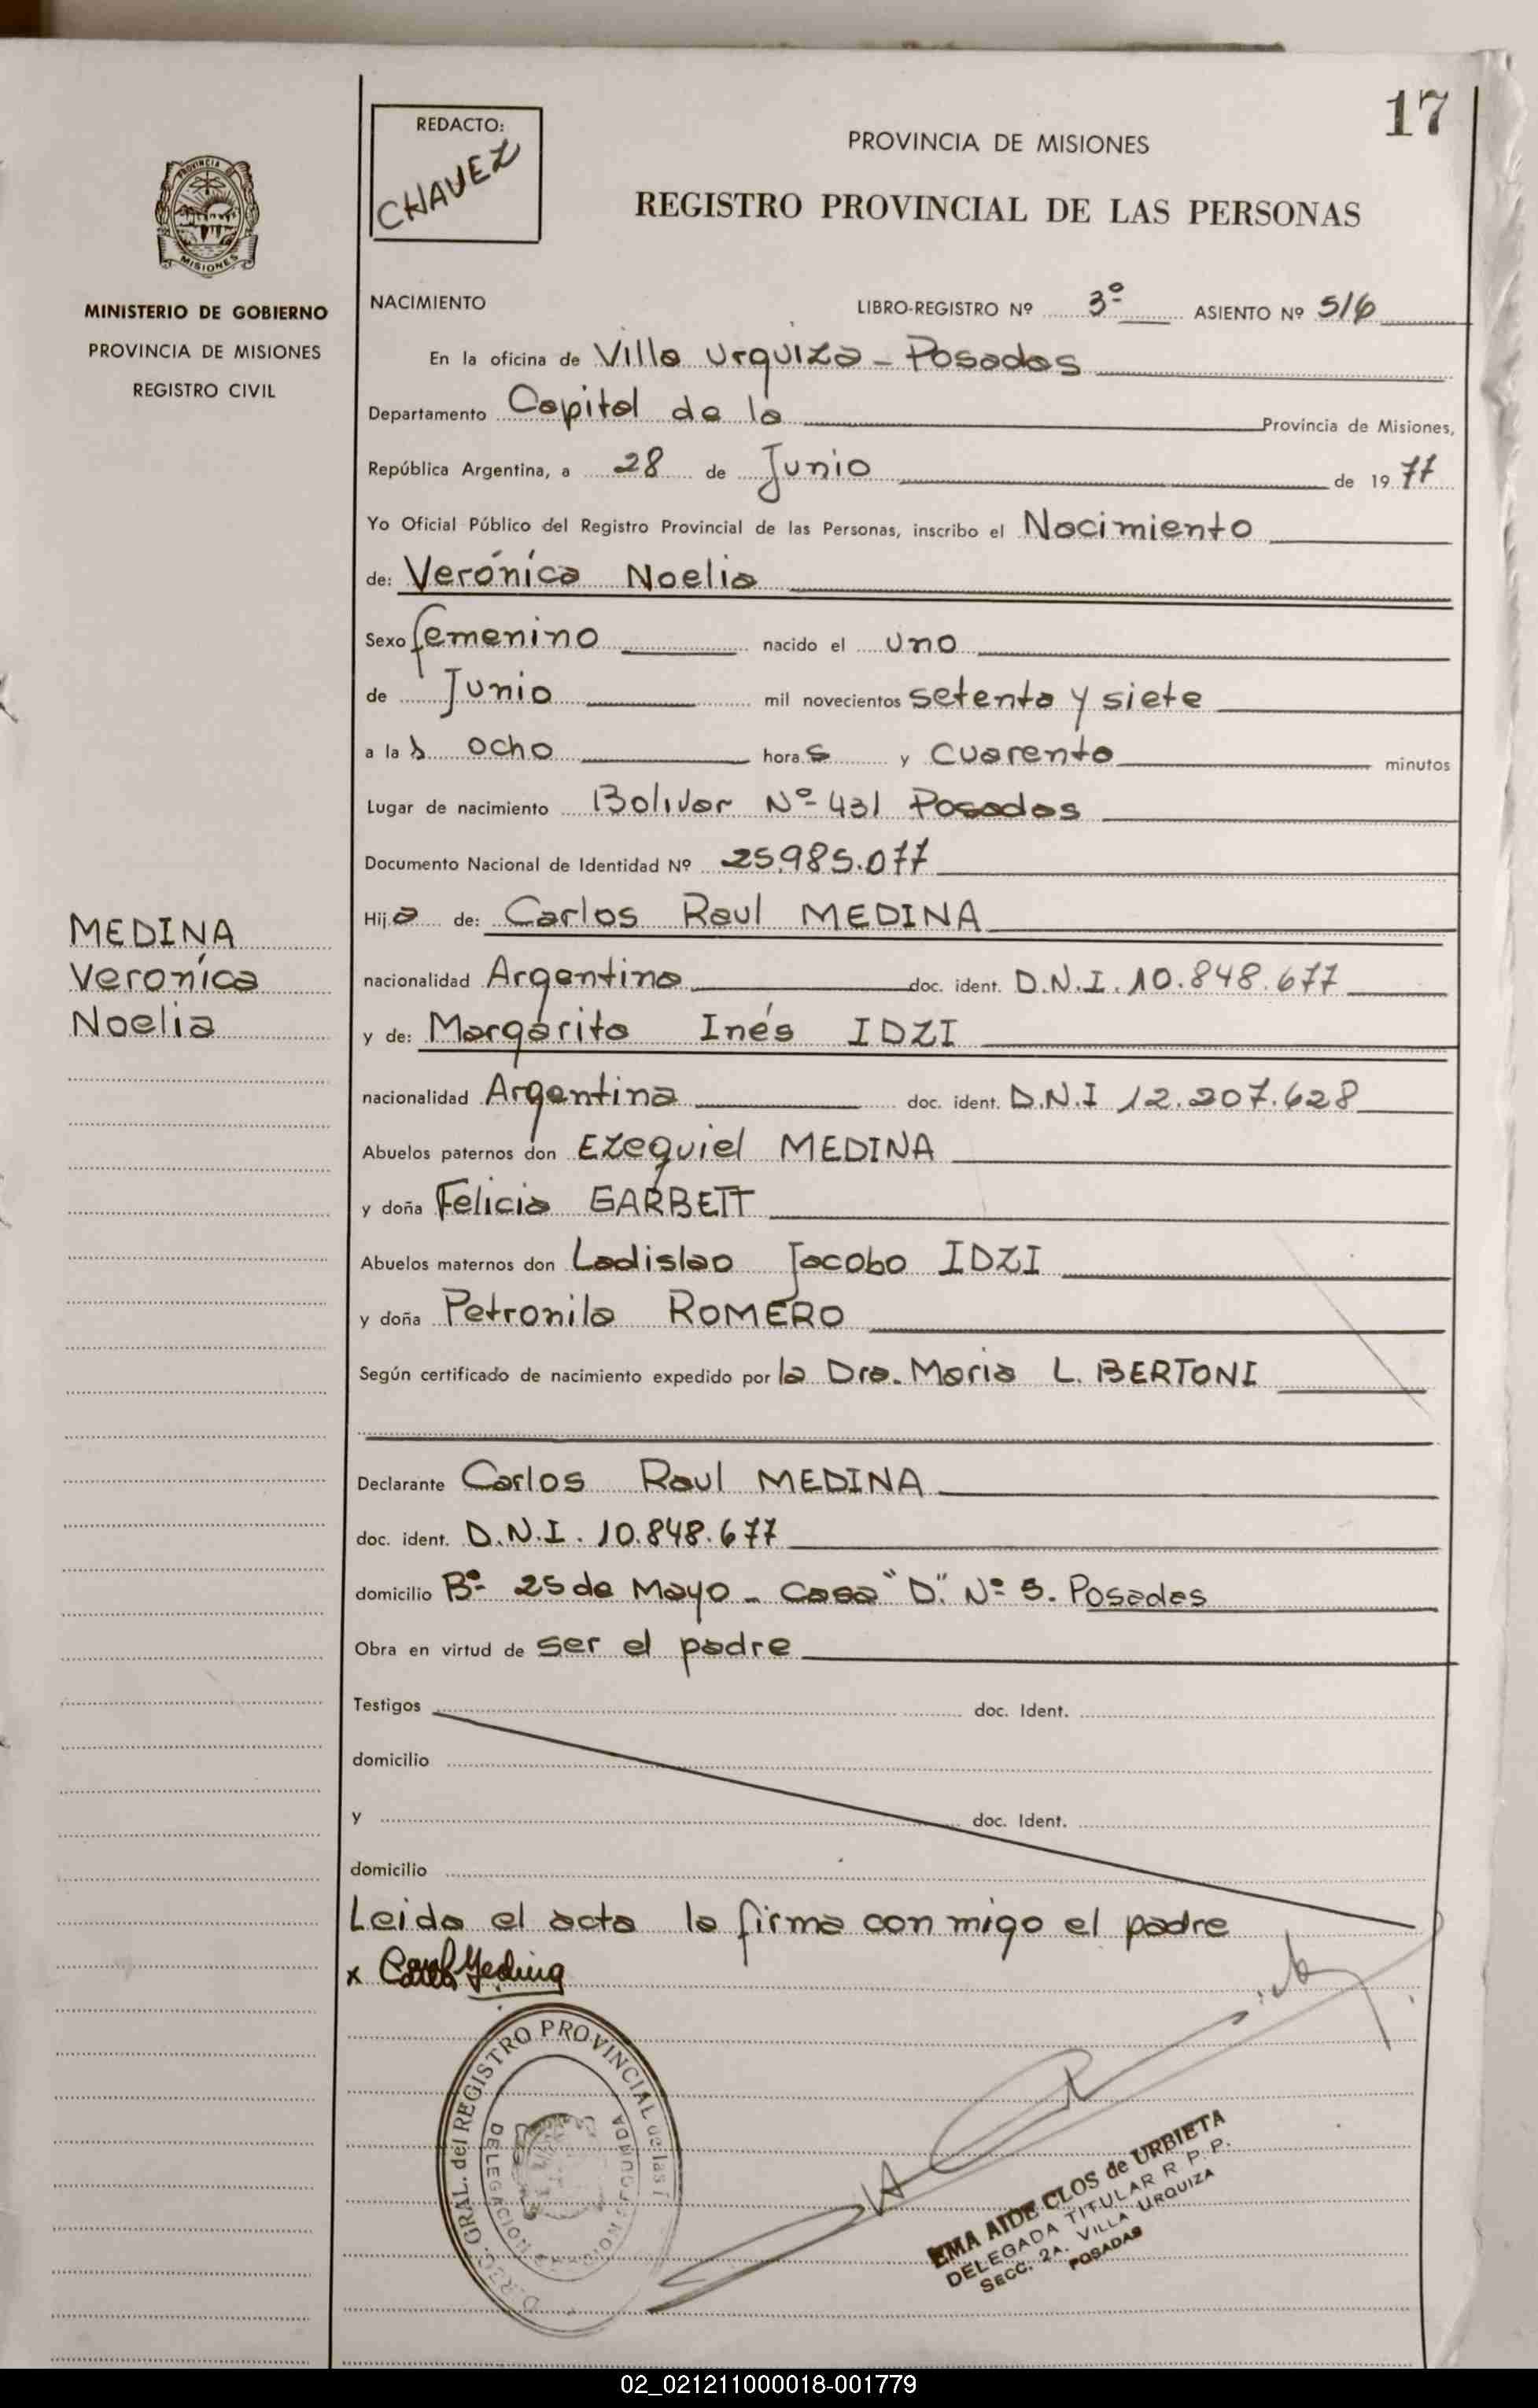 17
REDACTO:
CHAVEZ
PROVINCIA DE MISIONES
REGISTRO PROVINCIAL DE LAS PERSONAS
PROVINCIA
MISIONES
MINISTERIO DE GOBIERNO
PROVINCIA DE MISIONES
REGISTRO CIVIL
NACIMIENTO LIBRO-REGISTRO Nº 3º ASIENTO Nº 516
En la oficina de Villa Urquiza - Posadas
Departamento Capital de la Provincia de Misiones,
República Argentina, a 28 de Junio de 1977
Yo Oficial Público del Registro Provincial de las Personas, inscribo el Nacimiento
de: Verónica Noelia
Sexo femenino nacido el uno
de Junio mil novecientos setenta y siete
a las ocho horas y cuarenta minutos
Lugar de nacimiento Bolivar Nº 431 Posadas
Documento Nacional de Identidad Nº 25.985.077
Hija de: Carlos Raul MEDINA
MEDINA
Veronica
Noelia
nacionalidad Argentina doc. ident. D.N.I. 10.848.677
y de: Margarita Inés IDZI
nacionalidad Argentina doc. ident. D.N.I 12.207.628
Abuelos paternos don Ezequiel MEDINA
y doña Felicia GARBETT
Abuelos maternos don Ladislao Jacobo IDZI
y doña Petronila ROMERO
Según certificado de nacimiento expedido por la Dra. Maria L. BERTONI
Declarante Carlos Raul MEDINA
doc. ident. D.N.I. 10.848.677
domicilio Bº 25 de Mayo - Casa "D" Nº 5. Posadas
Obra en virtud de ser el padre
Testigos doc. Ident.
domicilio
y doc. Ident.
domicilio
Leida el acta la firma con migo el padre
x
DIREC. GRAL. del REGISTRO PROVINCIAL de las
DELEGACION
EMA AIDE CLOS de URBIETA
DELEGADA TITULAR R. P. P.
SECC. 2A. VILLA URQUIZA
POSADAS
02_021211000018-001779